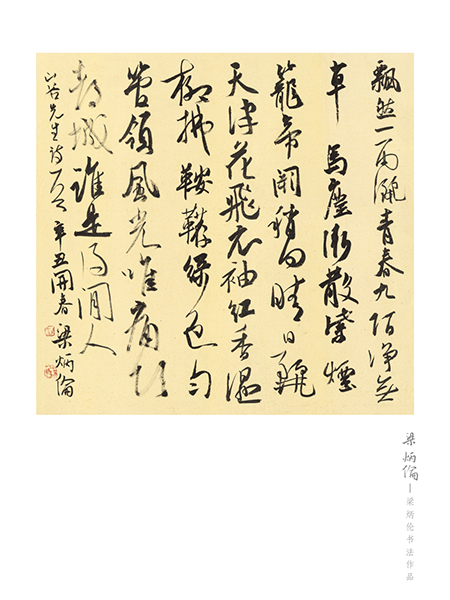 飄然一雨灑青春九陌净無
車馬塵漸散紫煙
籠帝闕稍回晴日麗
天津花飛衣袖紅香濕
柳拂鞍韉綠色匀
管領風光唯痛飲
都城誰是得閒人
山谷先生詩一首 辛丑開春 梁炳倫
梁炳倫—梁炳伦书法作品